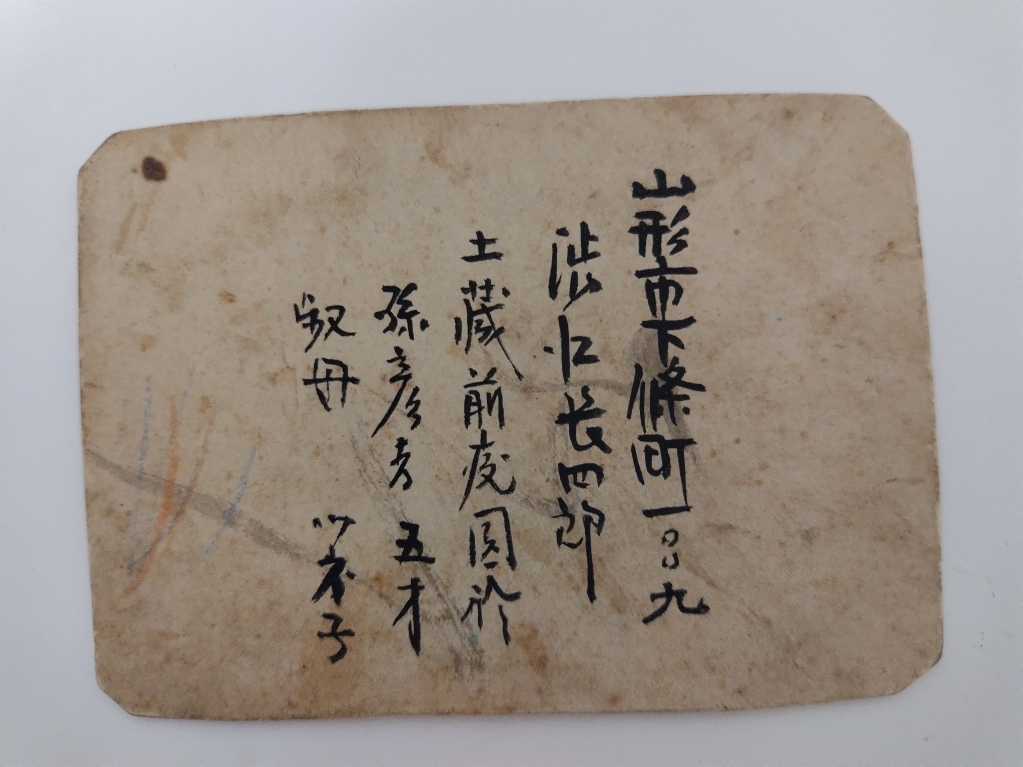 山形市下條町一〇〇九
渋江長四郎
土蔵前庭園於
孫彦孝 五才
叔母 子